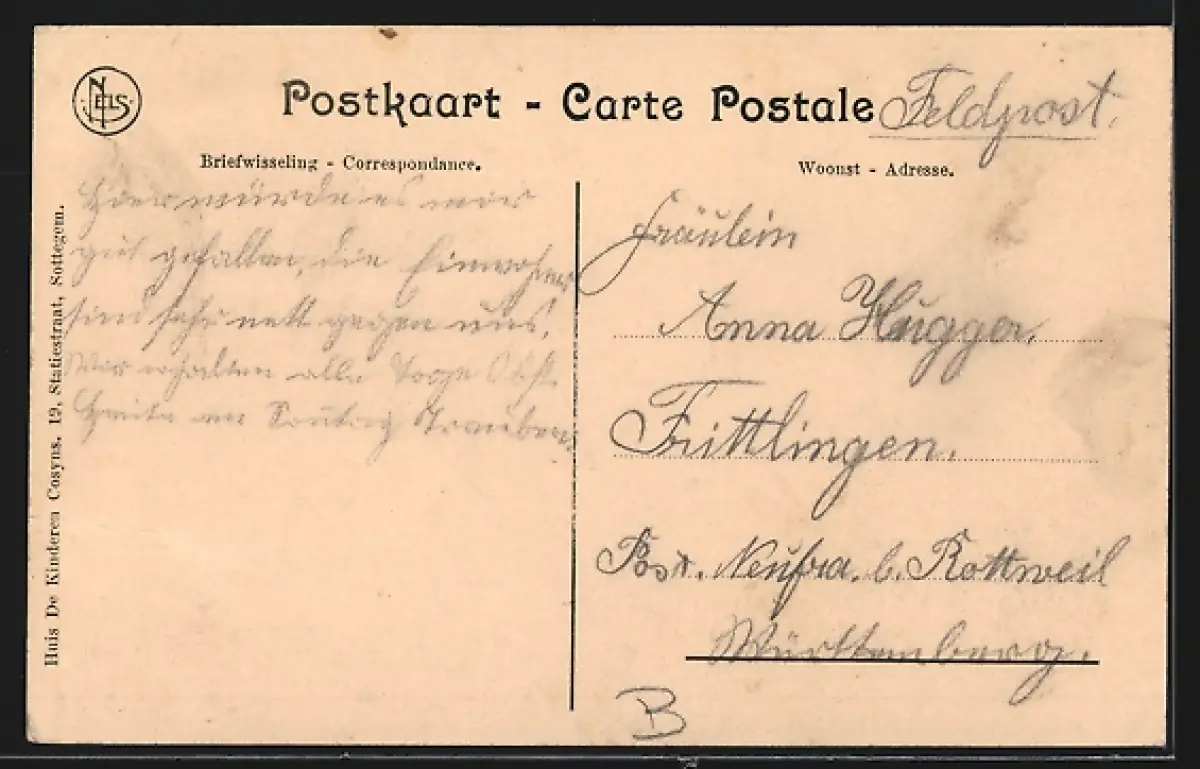 NELS
Postkaart - Carte Postale
Feldpost.
Briefwisseling - Correspondance.
Woonst - Adresse.
Huis De Kinderen Cosyns. 19, Statiestraat, Sottegem.
Hier würde es mir
gut gefallen, die Einwohner
sind sehr nett gegen uns.
Wir erhalten alle Tage Obst.
Heute am Sonntag Trauben.
Fräulein
Anna Hugger.
Frittlingen.
Post. Neufra. b. Rottweil
Württemberg.
B